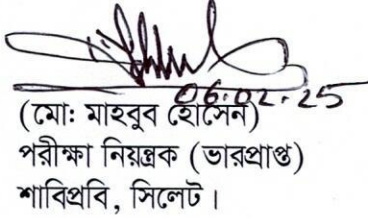 06.02.25
(মো: মাহবুব হোসেন)
পরীক্ষা নিয়ন্ত্রক (ভারপ্রাপ্ত)
শাবিপ্রবি, সিলেট।